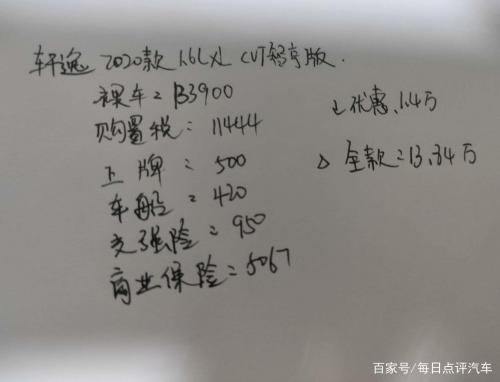 轩逸 2020款 1.6L XL CVT智享版.
裸车=133900
购置税:11444
上牌:500
车船=420
交强险=950
商业保险=5067
↓优惠.1.4万
△全款=13.84万
百家号/每日点评汽车